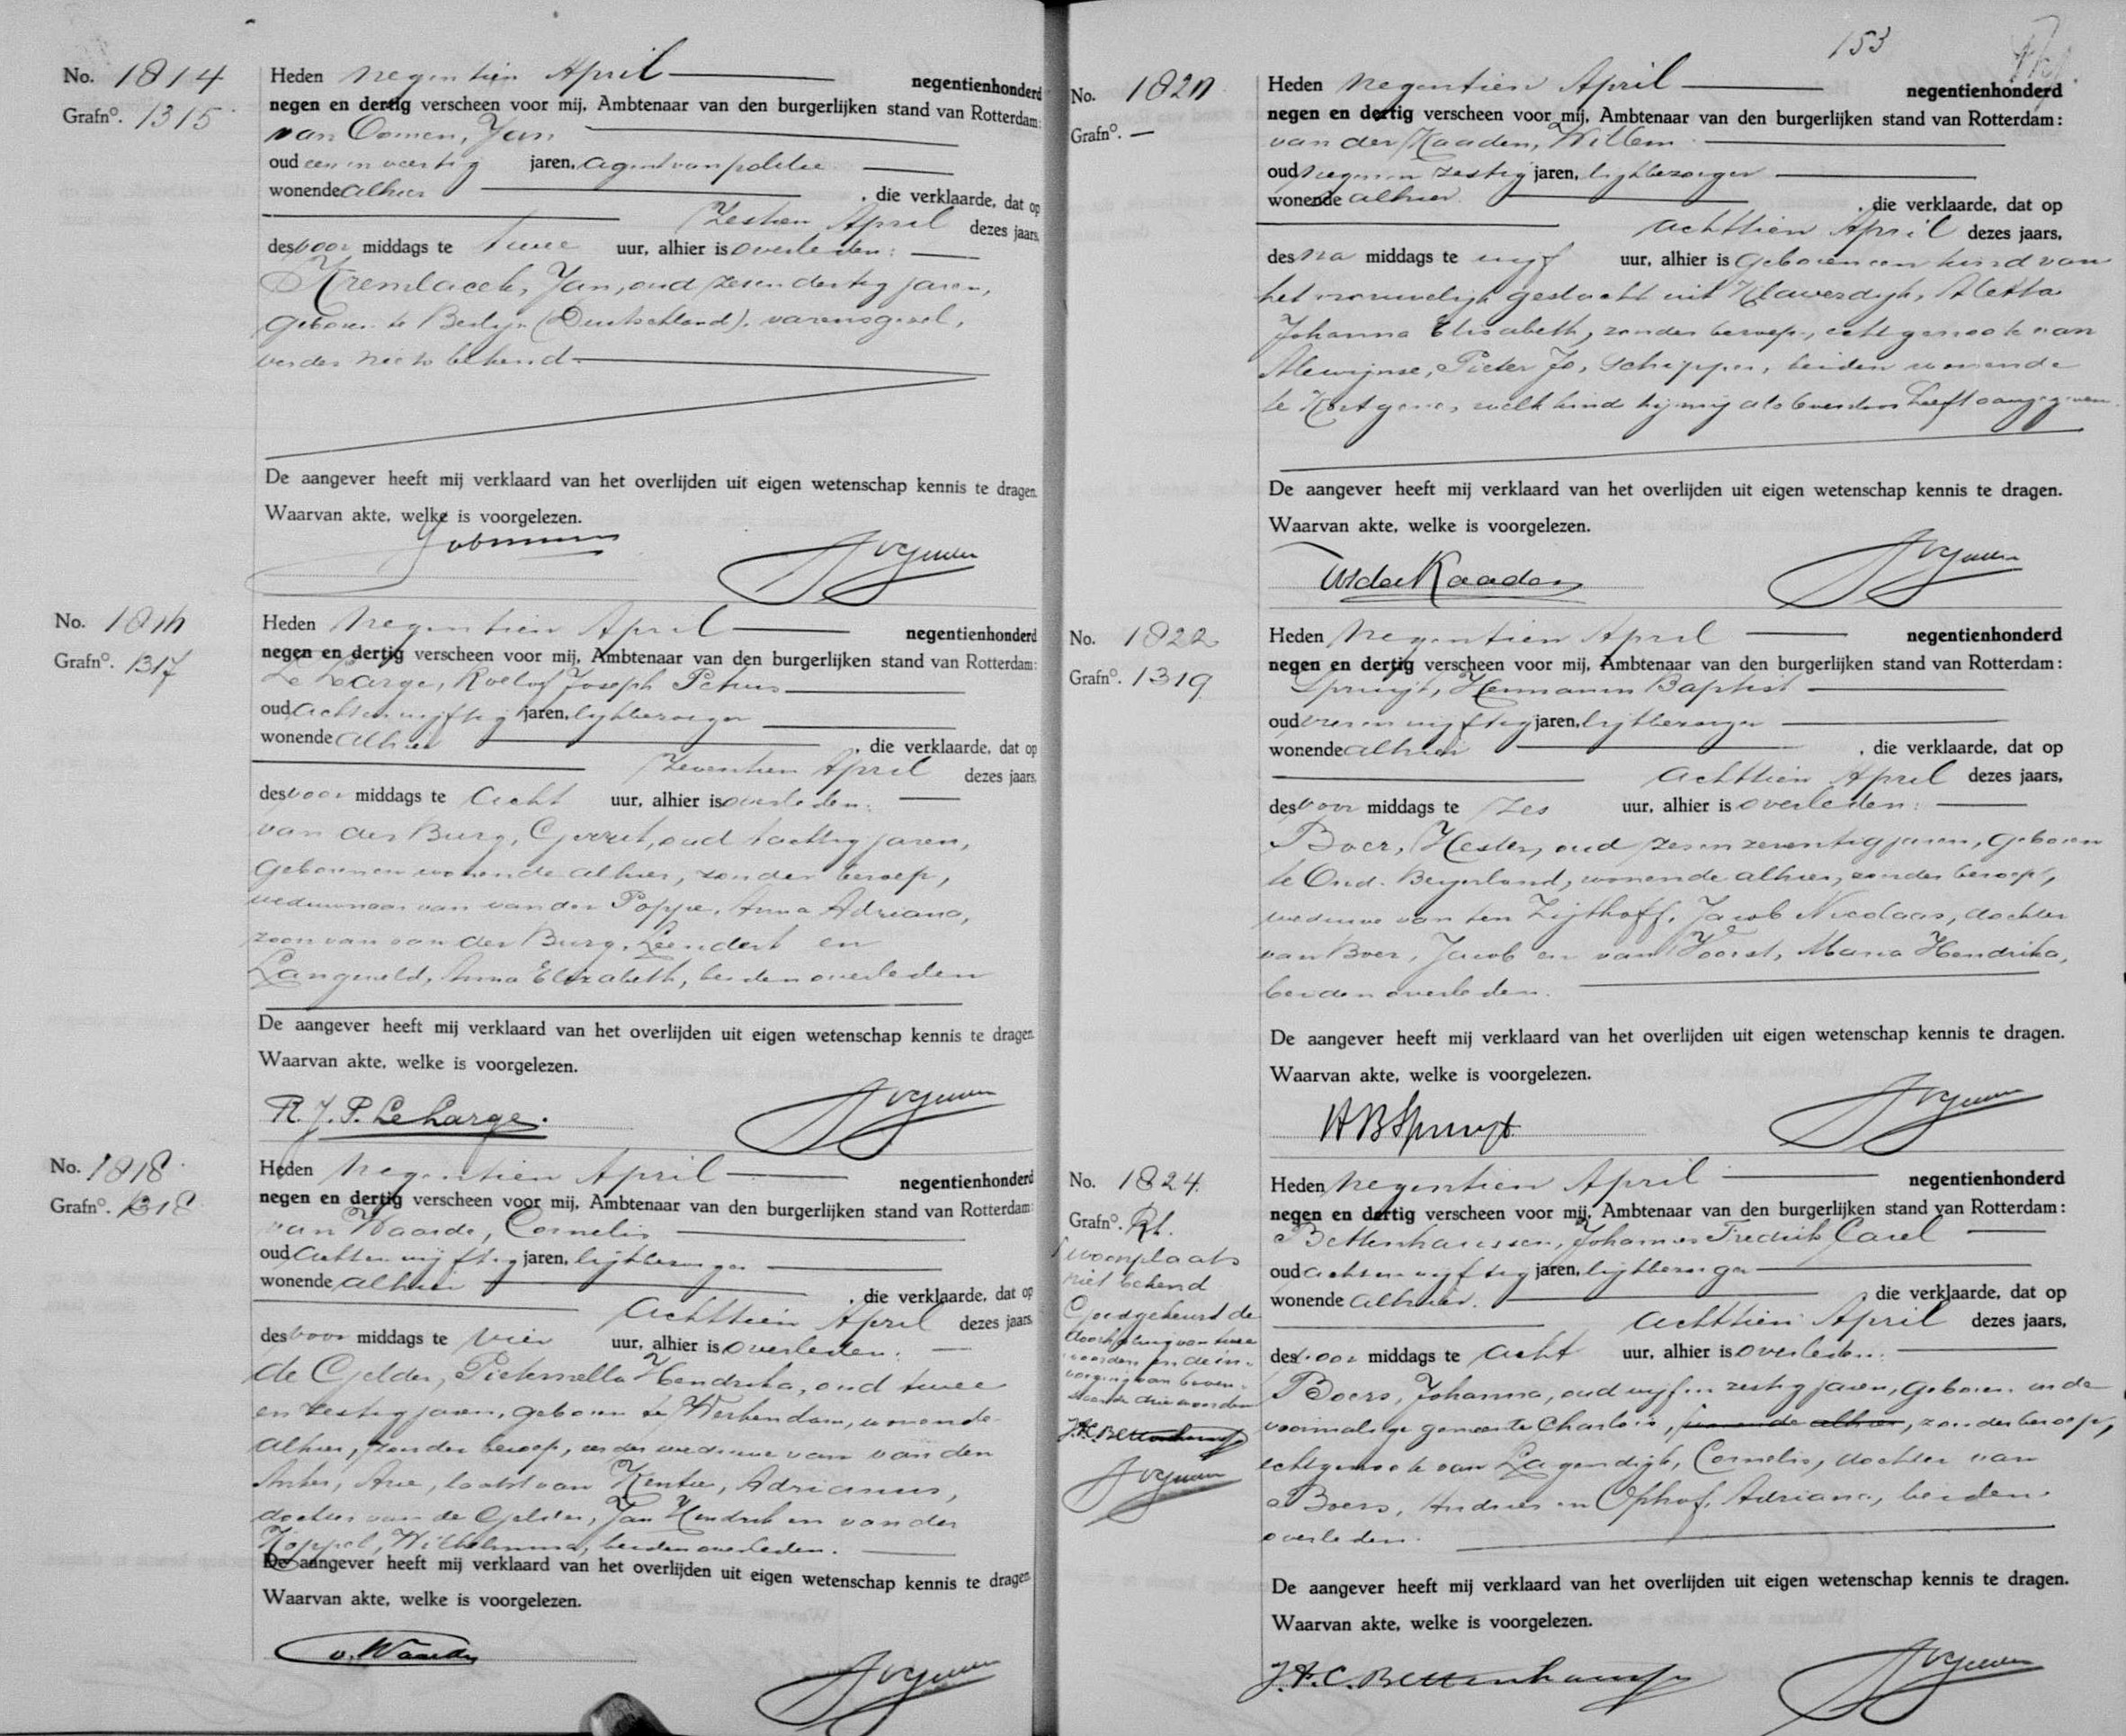 No. 1814
Grafn°. 1315
Heden negentien April negentienhonderd
negen en dertig verscheen voor mij, Ambtenaar van den burgerlijken stand van Rotterdam:
van Oomen, Jan
oud een en veertig jaren, agent van politie
wonende alhier , die verklaarde, dat op
zestien April dezes jaars,
des voor middags te twee uur, alhier is overleden:
Kremlacek, Jan, oud zes en dertig jaren,
geboren te Berlijn (Duitschland), varensgezel,
verder niet bekend
De aangever heeft mij verklaard van het overlijden uit eigen wetenschap kennis te dragen.
Waarvan akte, welke is voorgelezen.
No. 1816
Grafn°. 1317
Heden negentien April negentienhonderd
negen en dertig verscheen voor mij, Ambtenaar van den burgerlijken stand van Rotterdam:
Le Large, Roelof Joseph Petrus
oud acht en vijftig jaren, lijkbezorger
wonende alhier , die verklaarde, dat op
zeventien April dezes jaars,
des voor middags te acht uur, alhier is overleden:
van der Burg, Gerrit, oud tachtig jaren,
geboren en wonende alhier, zonder beroep,
weduwnaar van van der Poppe, Anna Adriana,
zoon van van der Burg, Leendert en
Langeveld, Anna Elizabeth, beiden overleden
De aangever heeft mij verklaard van het overlijden uit eigen wetenschap kennis te dragen.
Waarvan akte, welke is voorgelezen.
R. J. P. Le Large.
No. 1818
Grafn°. 1318
Heden negentien April negentienhonderd
negen en dertig verscheen voor mij, Ambtenaar van den burgerlijken stand van Rotterdam:
van Waarde, Cornelis
oud acht en vijftig jaren, lijkbezorger
wonende alhier , die verklaarde, dat op
achttien April dezes jaars,
des voor middags te vier uur, alhier is overleden:
de Gelder, Pieternella Hendrika, oud twee
en zestig jaren, geboren te Werkendam, wonende
alhier, zonder beroep, eerder weduwe van van den
Arie, laatst van Adrianus,
dochter van de Gelder, Jan Hendrik en van der
Koppel, Wilhelmina, beiden overleden.
De aangever heeft mij verklaard van het overlijden uit eigen wetenschap kennis te dragen.
Waarvan akte, welke is voorgelezen.
v. Waarde
153
No. 1820
Grafn°. —
Heden negentien April negentienhonderd
negen en dertig verscheen voor mij, Ambtenaar van den burgerlijken stand van Rotterdam:
van der Kaaden, Willem
oud negen en zestig jaren, lijkbezorger
wonende alhier , die verklaarde, dat op
achttien April dezes jaars,
des na middags te vijf uur, alhier is geboren een kind van
het vrouwelijk geslacht uit Klaverdijk, Aletta
Johanna Elisabeth, zonder beroep, echtgenoote van
Alewijnse, Pieter Jo, schipper, beiden wonende
te Kortgene, welk kind hij mij als levenloos heeft aangegeven.
De aangever heeft mij verklaard van het overlijden uit eigen wetenschap kennis te dragen.
Waarvan akte, welke is voorgelezen.
W v der Kaaden
No. 1822
Grafn°. 1319
Heden negentien April negentienhonderd
negen en dertig verscheen voor mij, Ambtenaar van den burgerlijken stand van Rotterdam:
Spruijt, Hermanus Baptist
oud zes en vijftig jaren, lijkbezorger
wonende alhier , die verklaarde, dat op
achttien April dezes jaars,
des voor middags te zes uur, alhier is overleden:
Boer, Hester, oud zes en zeventig jaren, geboren
te Oud-Beijerland, wonende alhier, zonder beroep,
weduwe van ten Zijthoff, Jacob Nicolaas, dochter
van Boer, Jacob en van Voorst, Maria Hendrika,
beiden overleden.
De aangever heeft mij verklaard van het overlijden uit eigen wetenschap kennis te dragen.
Waarvan akte, welke is voorgelezen.
H B Spruijt
No. 1824
Grafn°. Rt.
woonplaats
niet bekend
Goedgekeurd de
doorhaling van twee
woorden en de in-
voeging van boven-
staande drie woorden
J.F.C. Bettenhaussen
Heden negentien April negentienhonderd
negen en dertig verscheen voor mij, Ambtenaar van den burgerlijken stand van Rotterdam:
Bettenhaussen, Johannes Fredrik Carel
oud acht en vijftig jaren, lijkbezorger
wonende alhier. , die verklaarde, dat op
achttien April dezes jaars,
des voor middags te acht uur, alhier is overleden:
Boers, Johanna, oud vijf en zestig jaren, geboren in de
voormalige gemeente Charlois, wonende alhier, zonder beroep,
echtgenoote van Lagendijk, Cornelis, dochter van
Boers, Andries en Ophof, Adriana, beiden
overleden.
De aangever heeft mij verklaard van het overlijden uit eigen wetenschap kennis te dragen.
Waarvan akte, welke is voorgelezen.
J. F. C. Bettenhaussen